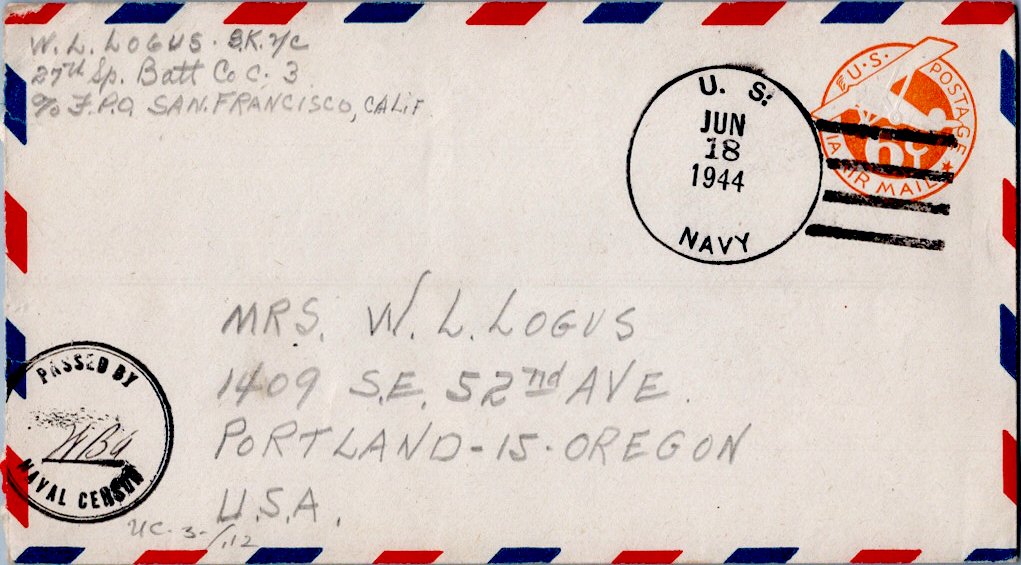 W. L. LOGUS. S.K. 2/C
27TH Sp. Batt Co C. 3
℅ F.P.O. SAN. FRANCISCO, CALIF
U. S.
JUN
18
1944
NAVY
U.S. POSTAGE
6¢
VIA AIR MAIL
MRS. W. L. LOGUS
1409 S.E. 52nd AVE.
PORTLAND-15. OREGON
U.S.A.
PASSED BY
NAVAL CENSOR